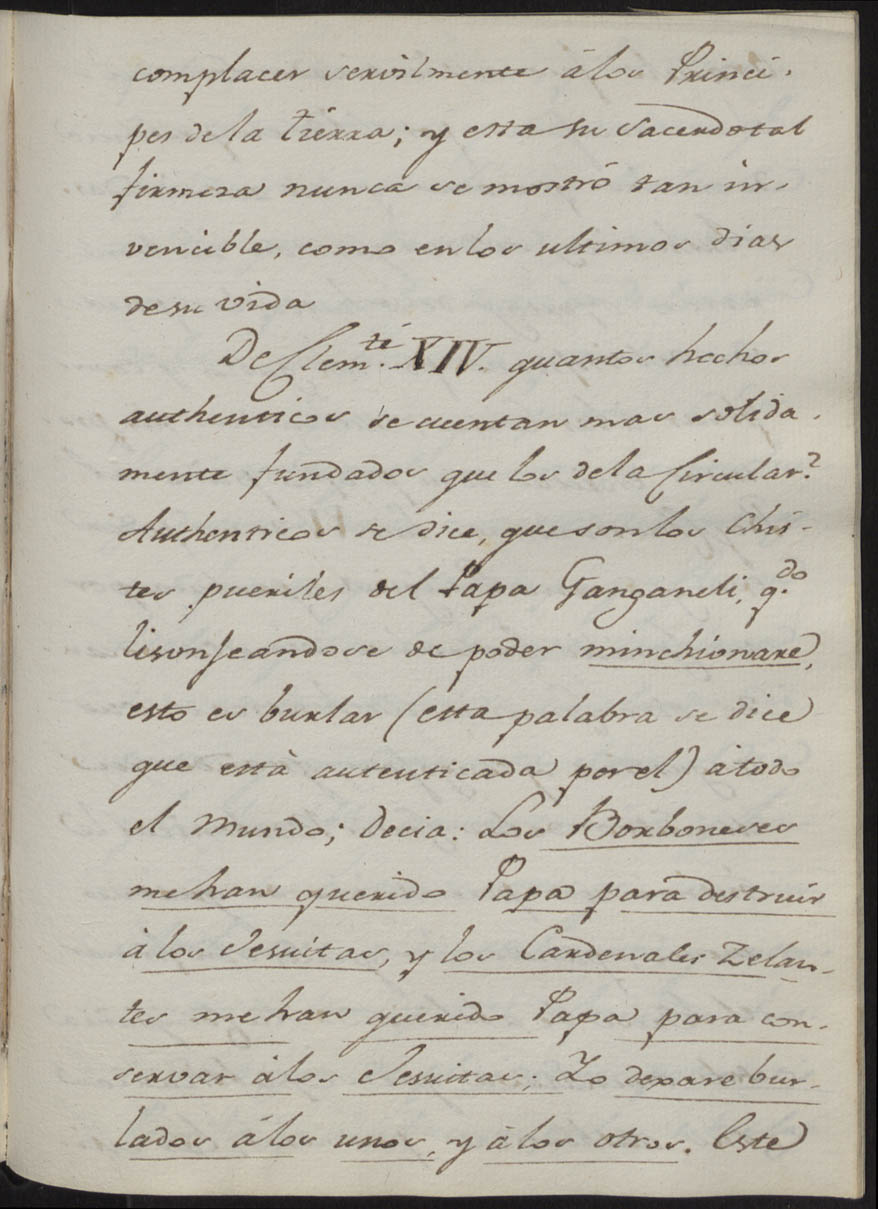 complacer servilmente à los Princi-
pes de la tierra; y esta su Sacerdotal
firmeza nunca se mostró tan in-
vencible, como en los ultimos dias
de su vida
De Clem.te XIV. quantos hechos
authenticos se cuentan mas solida-
mente fundados que los de la Circular?
Authenticos se dice, que son los Chis-
tes pueriles del Papa Ganganeli, q.do
lisonjeandose de poder minchionare,
esto es burlar (esta palabra se dice
que está autenticada por el) à todo
el Mundo; decia: Los Borboneses
me han querido Papa para destruir
à los Jesuitas, y los Cardenales Zelan-
tes me han querido Papa para con-
servar à los Jesuitas; Yo dexare bur-
lados à los unos, y à los otros. Este